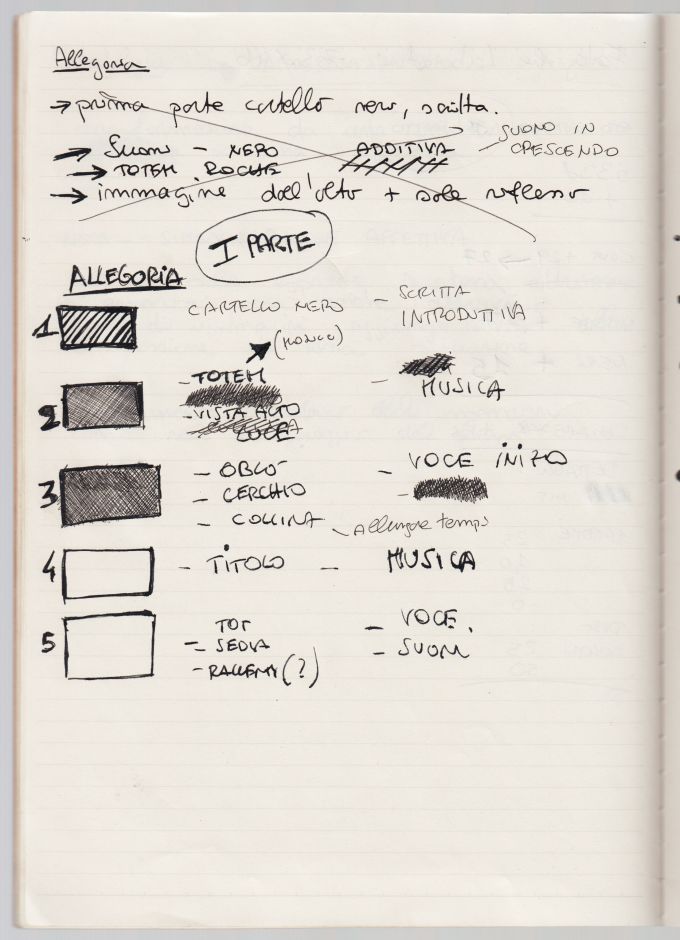 Allegoria
→ prima parte cartello nero, scritta.
→ Suono - NERO ADDITIVA - SUONO IN CRESCENDO
→ TOTEM ROCHE
→ immagine dall'alto + sole riflesso
I PARTE
ALLEGORIA
1 CARTELLO NERO - SCRITTA INTRODUTTIVA
2 - TOTEM - MUSICA
- VISTA ALTO
LUCE
3 - OBLÒ - VOCE INIZIO
- CERCHIO -
- COLLINA - Allungare tempo
4 - TITOLO - MUSICA
5 TOT - VOCE.
- SEDIA - SUONI
- RALLENTY (?)